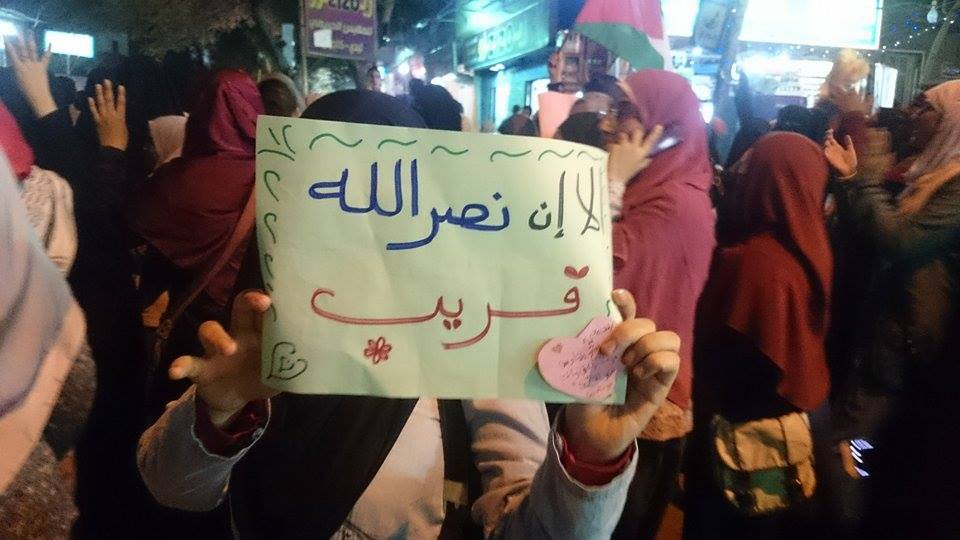 لا إن نصر الله
قريب